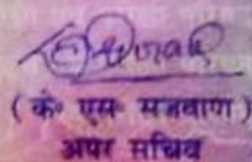 ( के० एस० सजवाण )
अपर सचिव